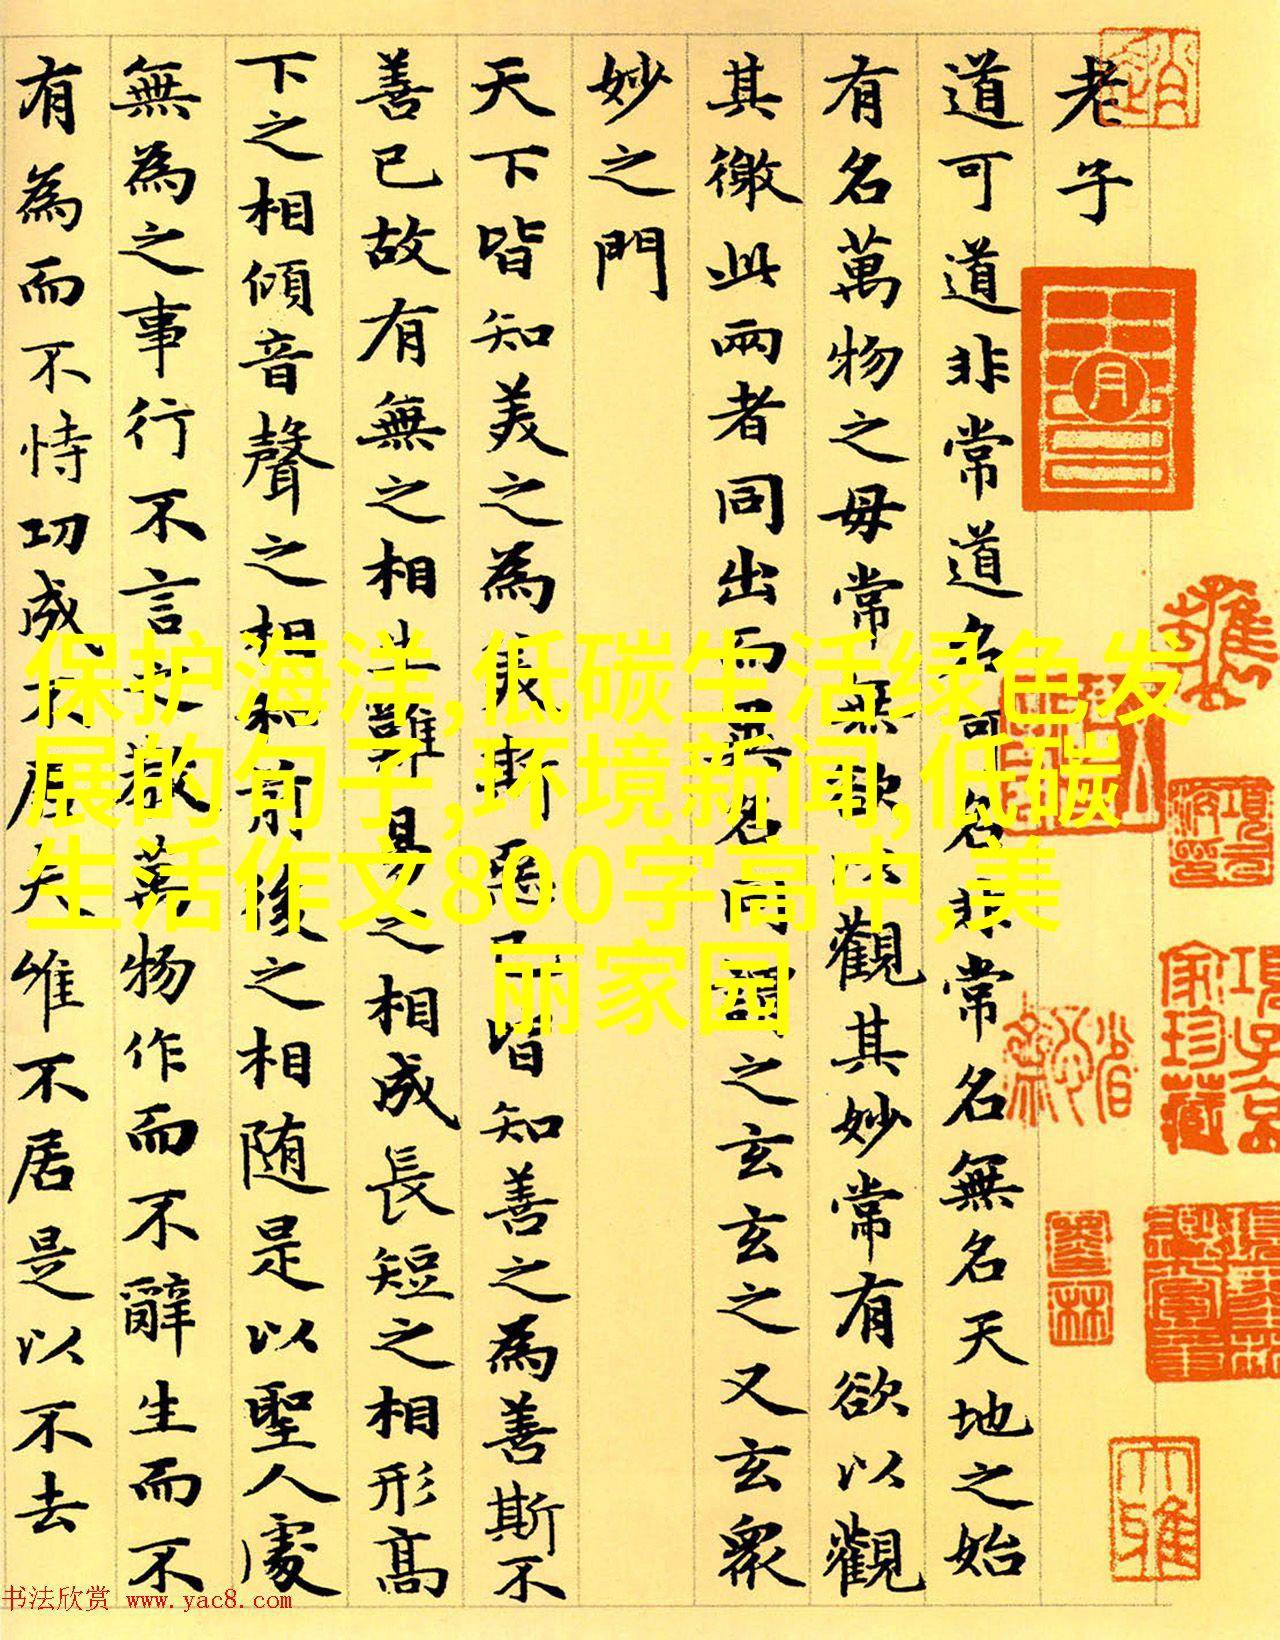 老子
道可道非常道名可名非常名無名天地之始
有名萬物之母常無欲以觀其妙常有欲以觀
其徼此兩者同出而異名同謂之玄玄之又玄衆
妙之門
天下皆知美之為美斯惡已皆知善之為善斯不
善已故有無之相生難易之相成長短之相形高
下之相傾音聲之相和前後之相随是以聖人處
無為之事行不言之教萬物作而不辭生而不
有為而不恃功成居夫唯不居是以不去
保护海洋,低碳生活绿色发
展的句子,环境新闻,低碳
生活作文800字高中,美
丽家园
书法欣赏 www.yac8.com